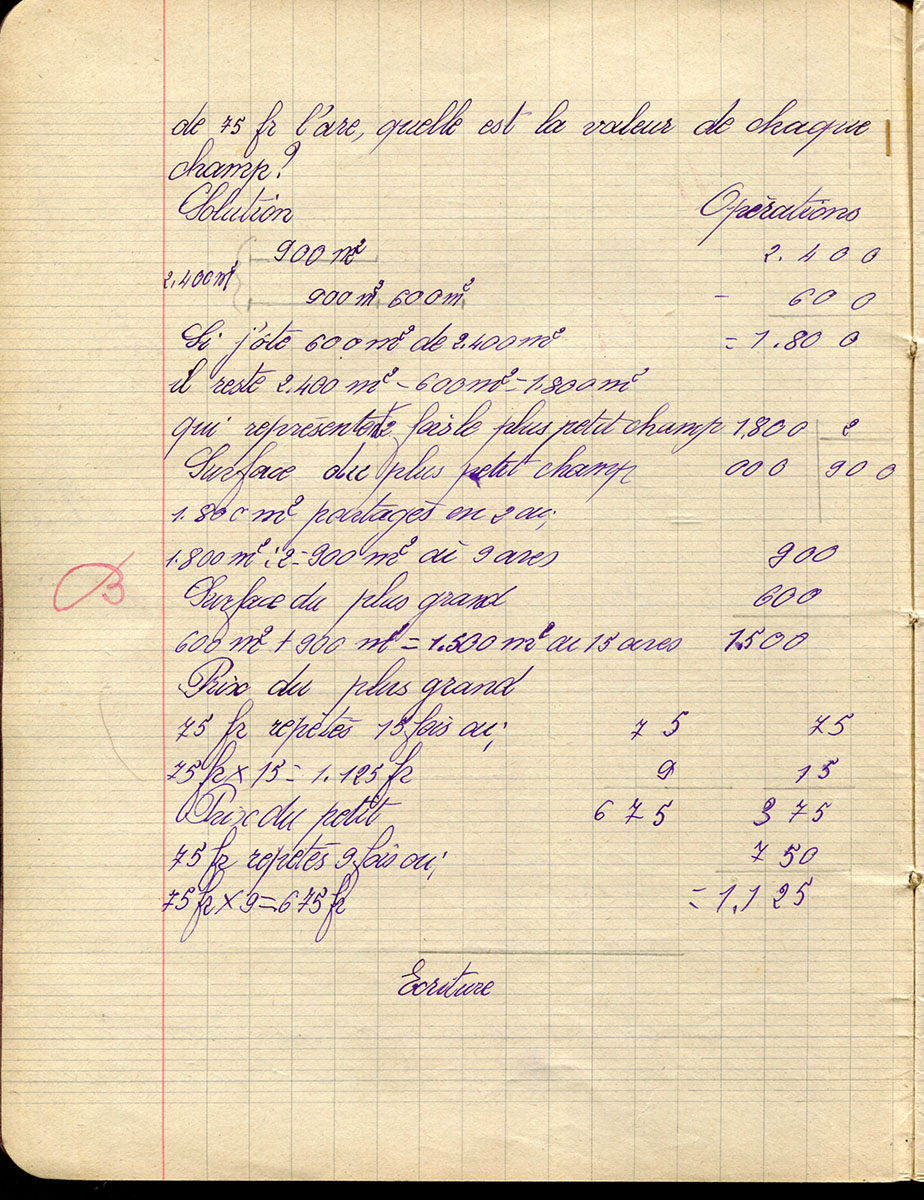 de 75 fr l'are, quelle est la valeur de chaque
champ?
Solution Opérations
900 m² 2.400
2.400m²
900m² 600m² - 600
Si j'ôte 600m² de 2.400m² = 1.800
il reste 2.400 m² - 600m² = 1.800m²
qui représente 2 fois le plus petit champ 1.800 | 2
Surface du plus petit champ 000 | 900
1.800m² partagés en 2 ou;
1.800m² : 2 = 900 m² ou 9 ares 900
Surface du plus grand 600
600 m² + 900 m² = 1.500 m² ou 15 ares 1.500
Prix du plus grand
75 fr repétés 15 fois ou; 75 75
75 fr x 15 = 1.125 fr 9 15
Prix du petit 675 375
75 fr repétés 9 fois ou; 750
75 fr x 9 = 675 fr = 1.125
B
Ecriture